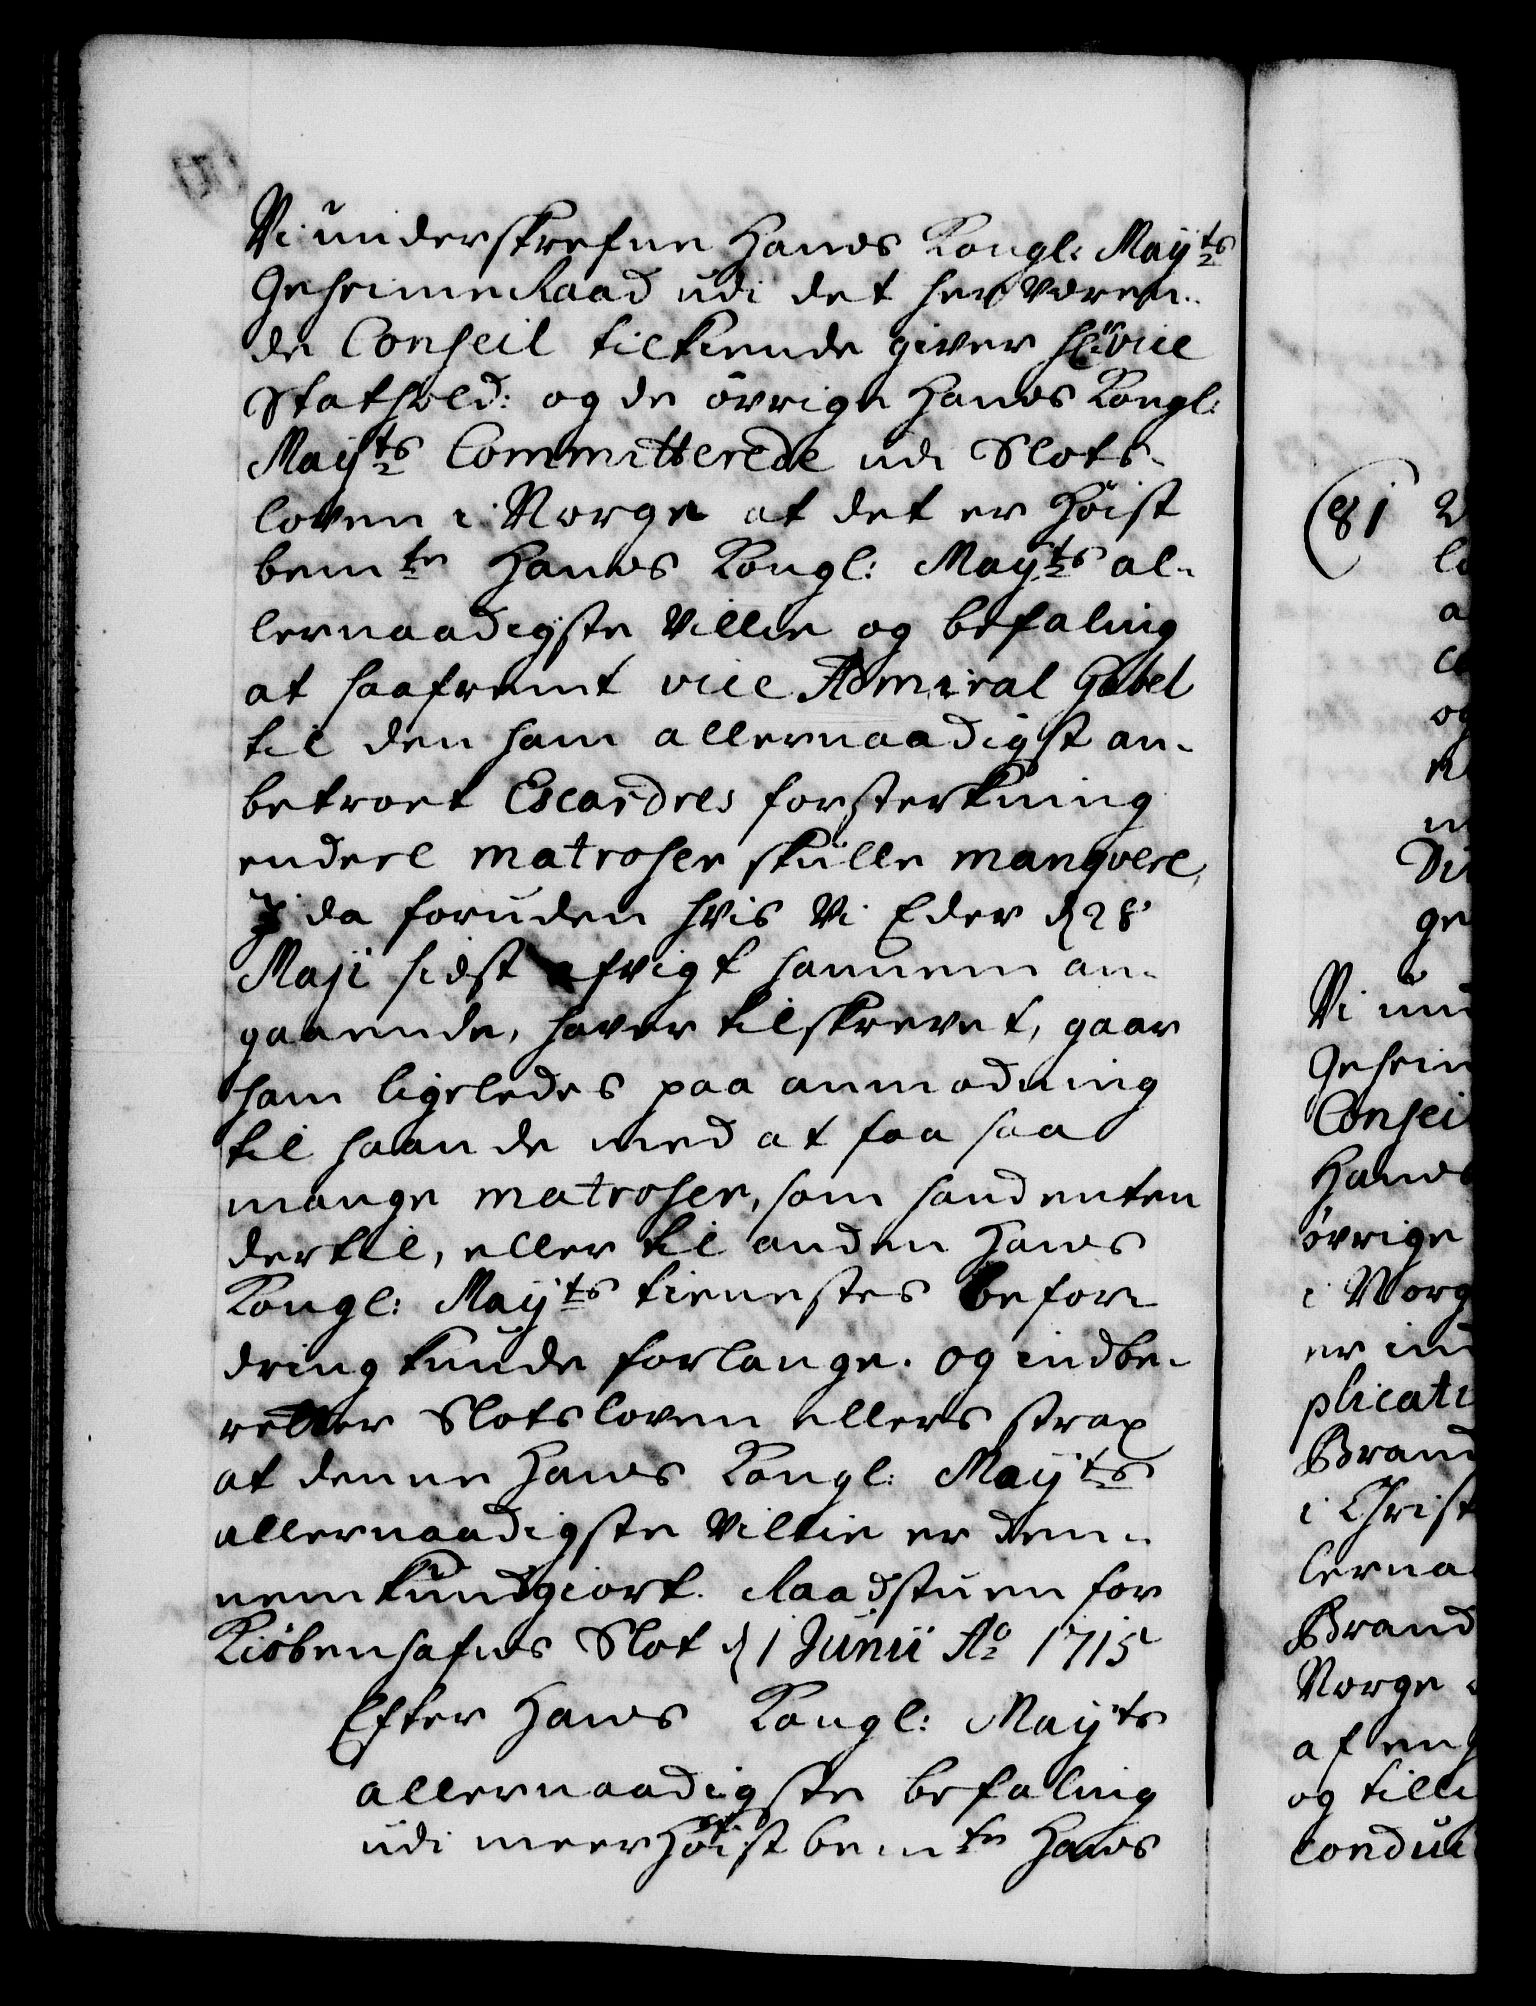 Vi underskrefne Hands Kongl: Mayts
GeheimeRaad udi det her væren-
de Conseil tilkiende giver Hr vice
Stathold: og de övrige Hands Kongl:
Mayts Committerede udi Slots-
loven i Norge at det er Höist
bemte Hands Kongl: Mayts al-
lernaadigste Villie og befaling
at saafremt vice Admiral Gabel
til den ham allernaadigst an-
betroet Escardres forsterkning
endeel matroser skulle manqvere,
I da foruden hvis Vi Eder d 28
Maji sidst afvigt hannem an-
gaaende, haver tilskrevet, gaar
ham ligeledes paa anmodning
til haande med at faa saa
mange matroser, som hand enten
dertil, eller til anden Hands
Kongl: Mayts tienestes befor-
dring kunde forlange. og indbe-
retter Slotsloven ellers strax
at denne Hands Kongl: Mayts
allernaadigste Villie er dem
nem kundgiort. Raadstuen for
Kiöbenhafns Slot d 1 Junii Ao 1715
Efter Hands Kongl: Mayts
allernaadigste befaling
udi meer Höist bemte Hands
(81
Vi und
Geheim
Consei
Hands
övrige
i Norg
er ind
plicati
Brand
i Christ
lerna
Brand
Norge
af eng
og tille
condui